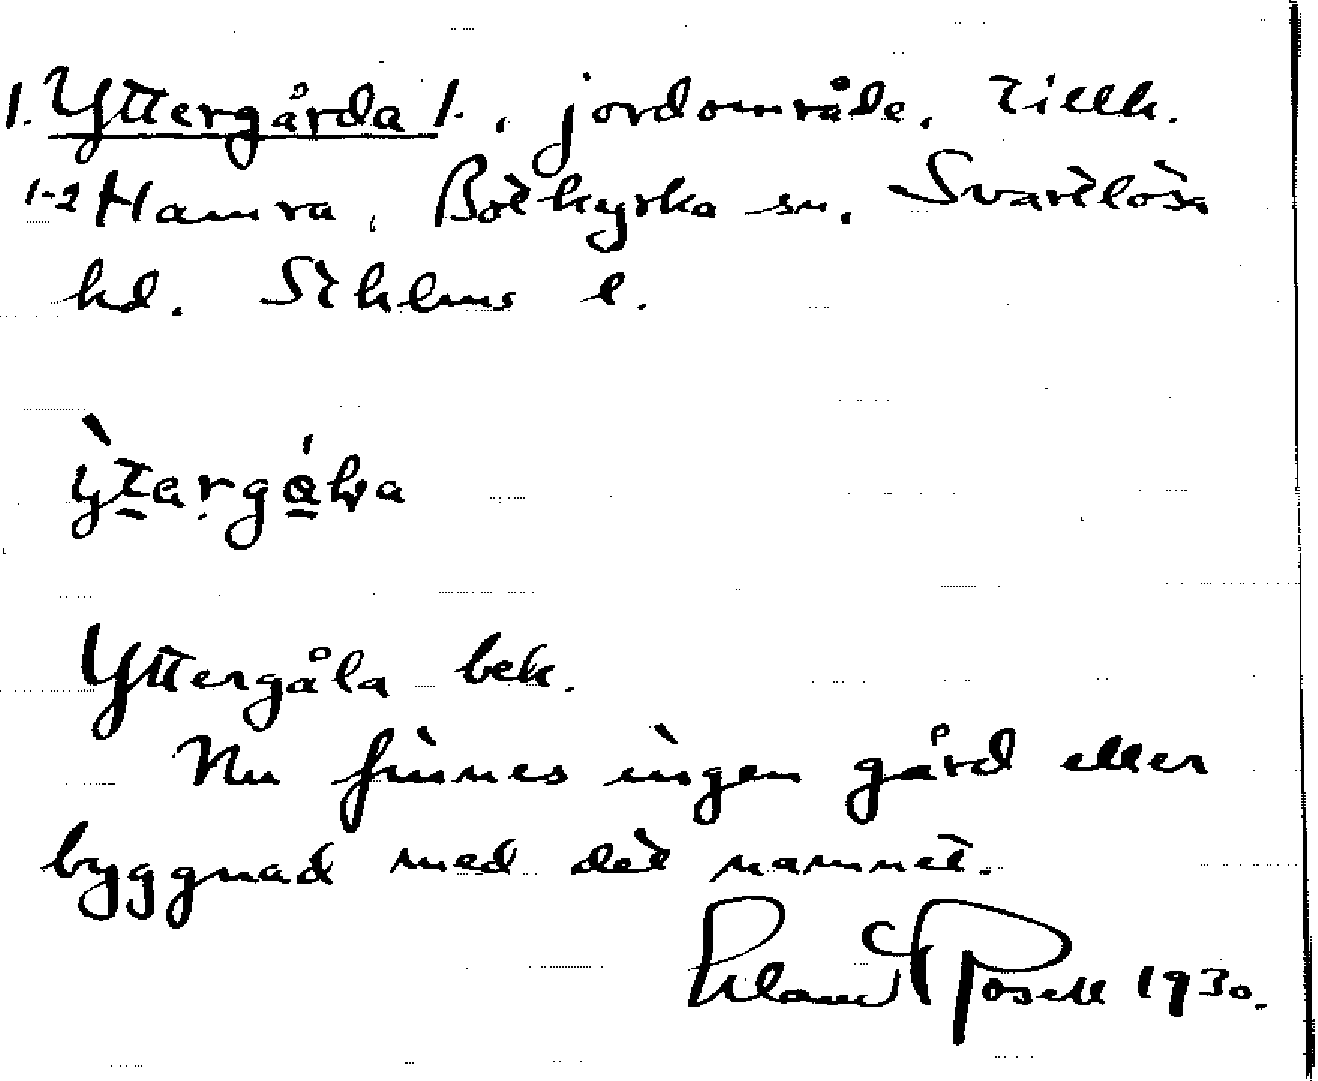 1. Yttergårda 1., jordområde, tillh.
1-2 Hamra, Botkyrka sn, Svartlösa
hd. Sthlms l.
Yttergåla bek.
Nu finnes ingen gård eller
byggnad med det namnet.
Erland Rosell 1930.